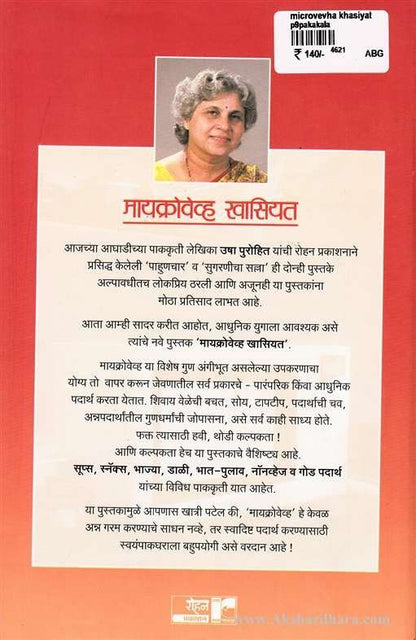 microvevha khasiyat
p9pakakala
₹ 140/- 4621
ABG
मायक्रोवेव्ह खासियत
आजच्या आघाडीच्या पाककृती लेखिका उषा पुरोहित यांची रोहन प्रकाशनाने
प्रसिद्ध केलेली 'पाहुणचार' व 'सुगरणीचा सल्ला' ही दोन्ही पुस्तके
अल्पावधीतच लोकप्रिय ठरली आणि अजूनही या पुस्तकांना
मोठा प्रतिसाद लाभत आहे.
आता आम्ही सादर करीत आहोत, आधुनिक युगाला आवश्यक असे
त्यांचे नवे पुस्तक 'मायक्रोवेव्ह खासियत'.
मायक्रोवेव्ह या विशेष गुण अंगीभूत असलेल्या उपकरणाचा
योग्य तो वापर करून जेवणातील सर्व प्रकारचे - पारंपरिक किंवा आधुनिक
पदार्थ करता येतात. शिवाय वेळेची बचत, सोय, टापटीप, पदार्थांची चव,
अन्नपदार्थांतील गुणधर्मांची जोपासना, असे सर्व काही साध्य होते.
फक्त त्यासाठी हवी, थोडी कल्पकता !
आणि कल्पकता हेच या पुस्तकाचे वैशिष्ट्य आहे.
सूप्स, स्नॅक्स, भाज्या, डाळी, भात-पुलाव, नॉनव्हेज व गोड पदार्थ
यांच्या विविध पाककृती यात आहेत.
या पुस्तकामुळे आपणास खात्री पटेल की, 'मायक्रोवेव्ह' हे केवळ
अन्न गरम करण्याचे साधन नव्हे, तर स्वादिष्ट पदार्थ करण्यासाठी
स्वयंपाकघराला बहुपयोगी असे वरदान आहे !
रोहन
प्रकाशन
www.Akshardhara.com